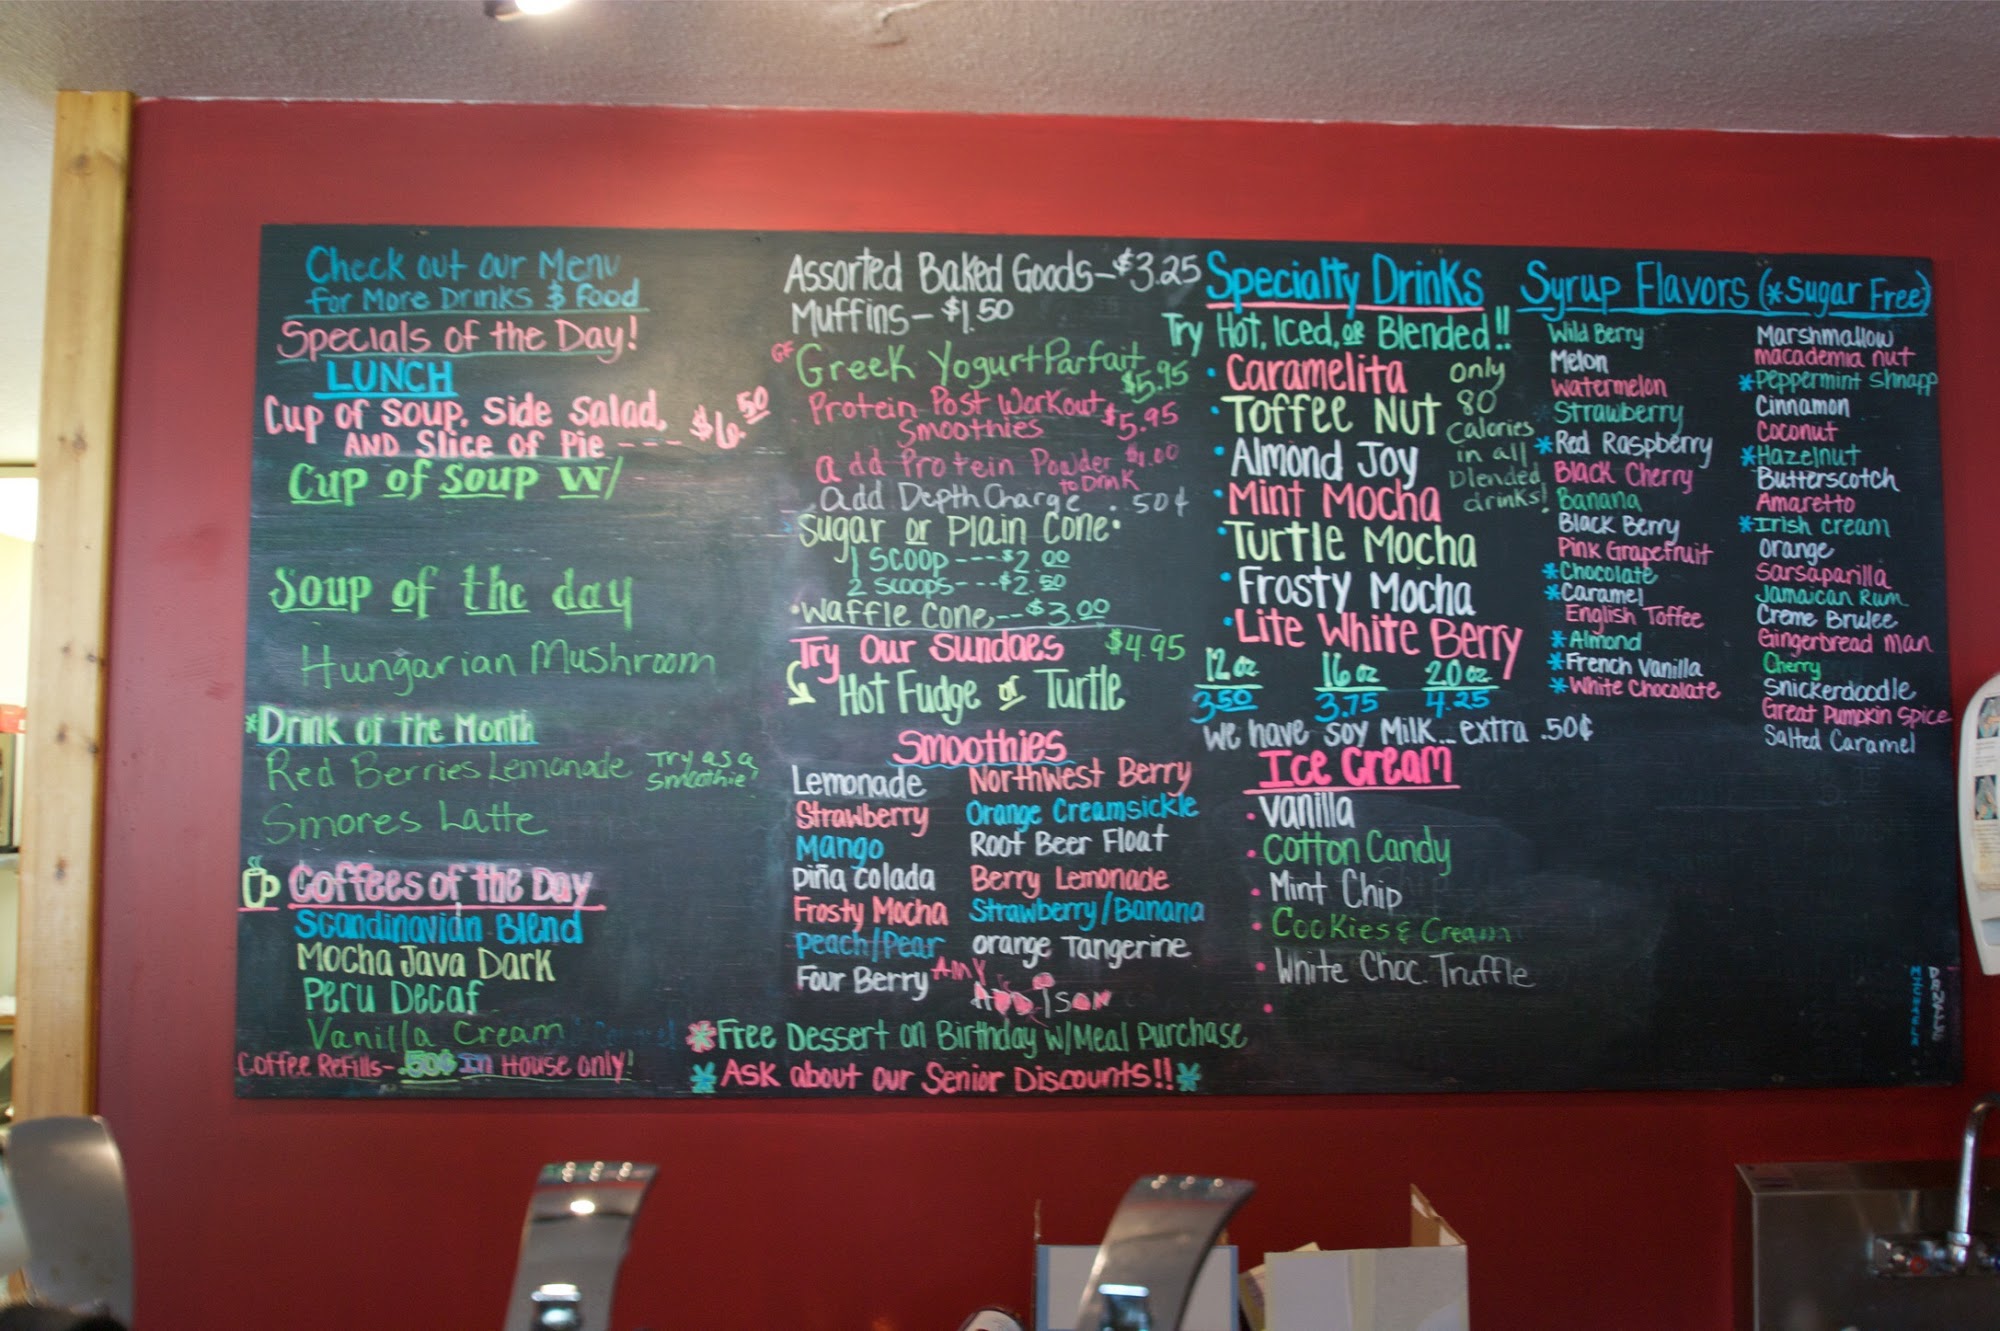 Check out our Menu
for More Drinks & Food
Specials of the Day!
LUNCH
Cup of Soup, Side Salad,
AND Slice of Pie --- $6.50
Cup of Soup w/
Soup of the day
Hungarian Mushroom
*Drink of the Month
Red Berries Lemonade Try as a
Smoothie!
Smores Latte
Coffees of the Day
Scandinavian Blend
Mocha Java Dark
Peru Decaf
Vanilla Cream
Coffee Refills- .50¢ In House only!
Assorted Baked Goods - $3.25
Muffins - $1.50
GF Greek Yogurt Parfait
$5.95
Protein Post Workout $5.95
Smoothies
add Protein Powder $1.00
to Drink
add Depth Charge . 50¢
Sugar or Plain Cone.
1 Scoop ---$2.00
2 Scoops ---$2.50
•Waffle Cone, -- $3.00
Try Our Sundaes $4.95
Hot Fudge or Turtle
Smoothies
Lemonade
Strawberry
Mango
piña colada
Frosty Mocha
Peach/Pear
Four Berry
Northwest Berry
Orange Creamsickle
Root Beer Float
Berry Lemonade
Strawberry/Banana
orange Tangerine
Amy
Addison
*Free Dessert on Birthday w/Meal Purchase
*Ask about our Senior Discounts!!*
Specialty Drinks
Try Hot, Iced, or Blended!!
• Caramelita
• Toffee Nut
• Almond Joy
• Mint Mocha
• Turtle Mocha
• Frosty Mocha
• Lite White Berry
only
80
Calories
in all
blended
drinks!
12oz 16oz 20oz
3.50 3.75 4.25
We have Soy Milk... extra .50¢
Ice Cream
• Vanilla
• Cotton Candy
• Mint Chip
• Cookies & Cream
• White Choc. Truffle
•
Syrup Flavors (*Sugar Free)
Wild Berry
Melon
Watermelon
Strawberry
*Red Raspberry
Black Cherry
Banana
Black Berry
Pink Grapefruit
*Chocolate
*Caramel
English Toffee
*Almond
*French Vanilla
*White Chocolate
Marshmallow
macadamia nut
*Peppermint Shnapp
Cinnamon
Coconut
*Hazelnut
Butterscotch
Amaretto
*Irish cream
orange
Sarsaparilla
Jamaican Rum
Creme Brulee
Gingerbread Man
Cherry
Snickerdoodle
Great Pumpkin Spice
Salted Caramel